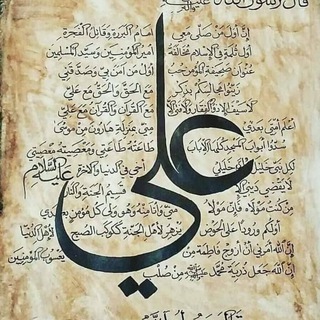 قال رسول الله
إن أول من صلى معي
إمام البررة وقاتل الفجرة
أول ثلمة في الإسلام مخالفة
أمير المؤمنين وسيد المسلمين
عنوان صحيفة المؤمن حب
أول من آمن بي وصدقني
زينوا مجالسكم بذكر
مع الحق والحق مع علي
لا سيف إلا ذو الفقار ولا فتى إلا
مع القرآن والقرآن مع علي
أعلم أمتي بعدي
مني بمنزلة هارون من موسى
سدوا أبواب المسجد كلها إلا باب
طاعته طاعتي ومعصيته معصيتي
لكل نبي خليل وخليلي
أخي في الدنيا والآخرة
عليه السلام
لا يقضي ديني إلا
قسيم الجنة والنار
من كنت مولاه فإن مولاه
مني وأنا منه وهو ولي كل مؤمن بعدي
أولكم ورودا على الحوض
يزهر لأهل الجنة ككوكب الصبح لأهل الدنيا
إن الله أمرني أن أزوج فاطمة من
يعسوب المؤمنين
إن الله جعل ذرية محمد
من صلب
علي